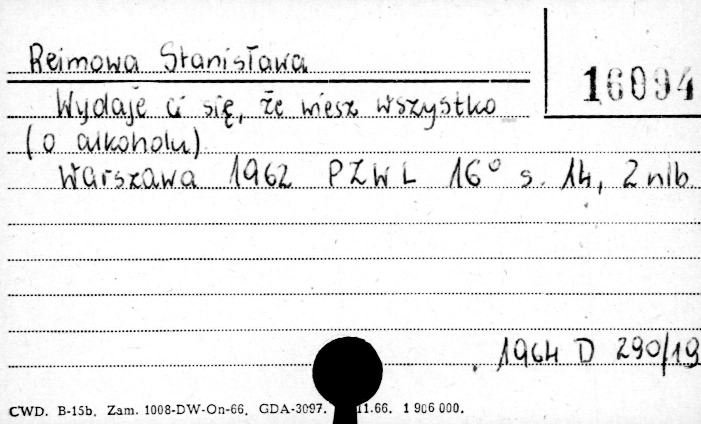 Reimowa Stanisława
16094
Wydaje ci się, że wiesz wszystko
(o alkoholu)
Warszawa 1962 PZWL 16° s. 14, 2 nlb.
1964 D 290/19
CWD. B-15b. Zam. 1008-DW-On-66. GDA-3097. 11.66. 1 906 000.